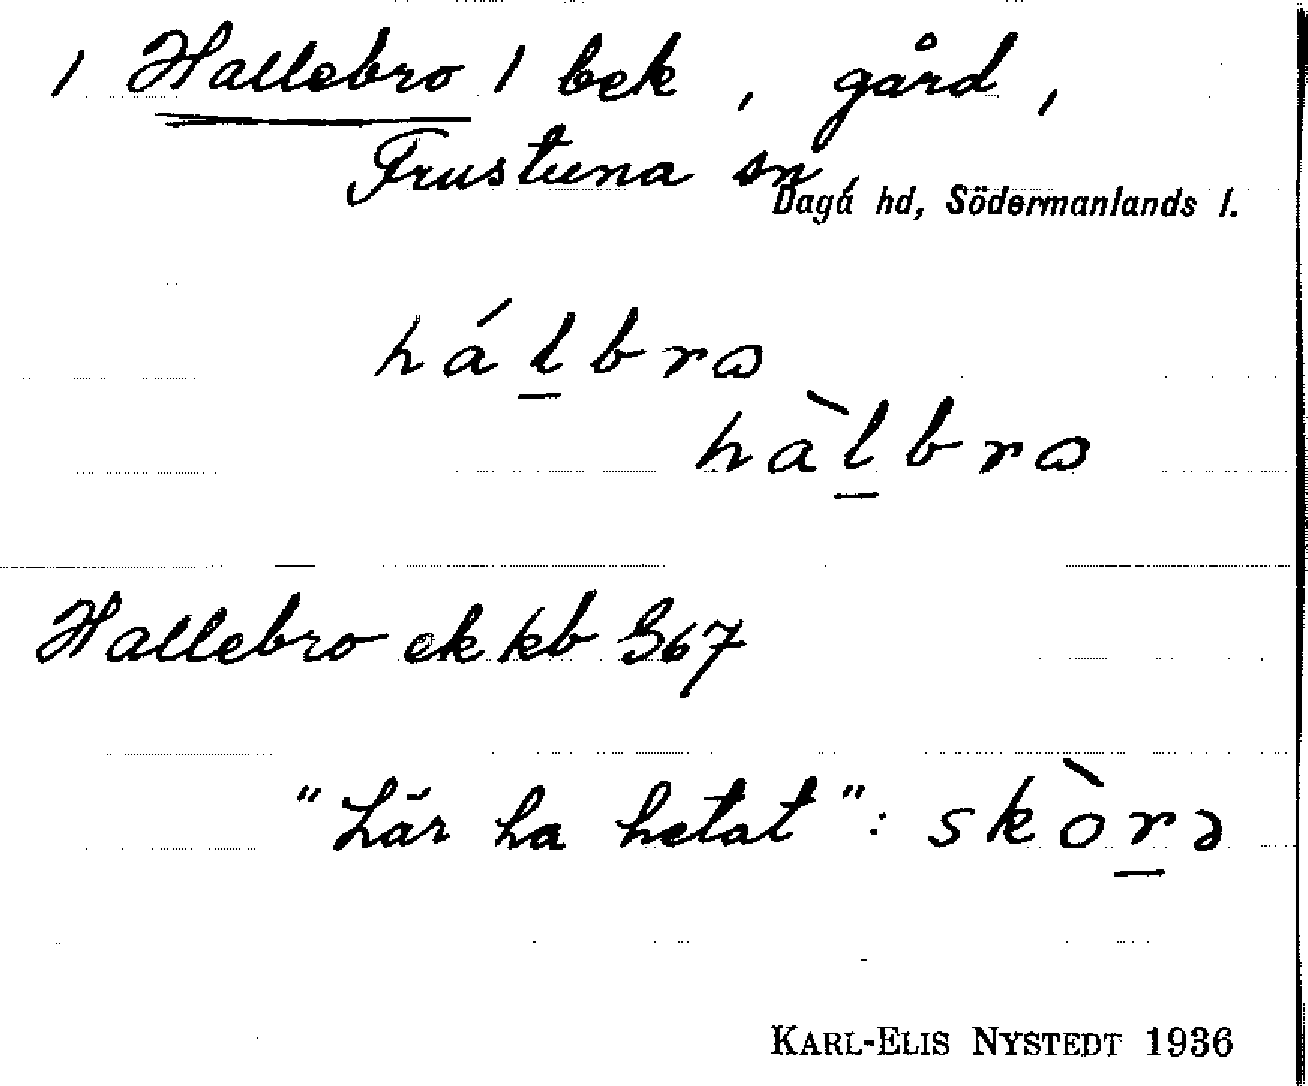 / Hallebro / bek, gård,
Frustuna sn,
Dagå hd, Södermanlands l.
hálbrɷ
hàlbrɷ
Hallebro ek kb S67
"Lär ha hetat": skòrə
KARL-ELIS NYSTEDT 1936